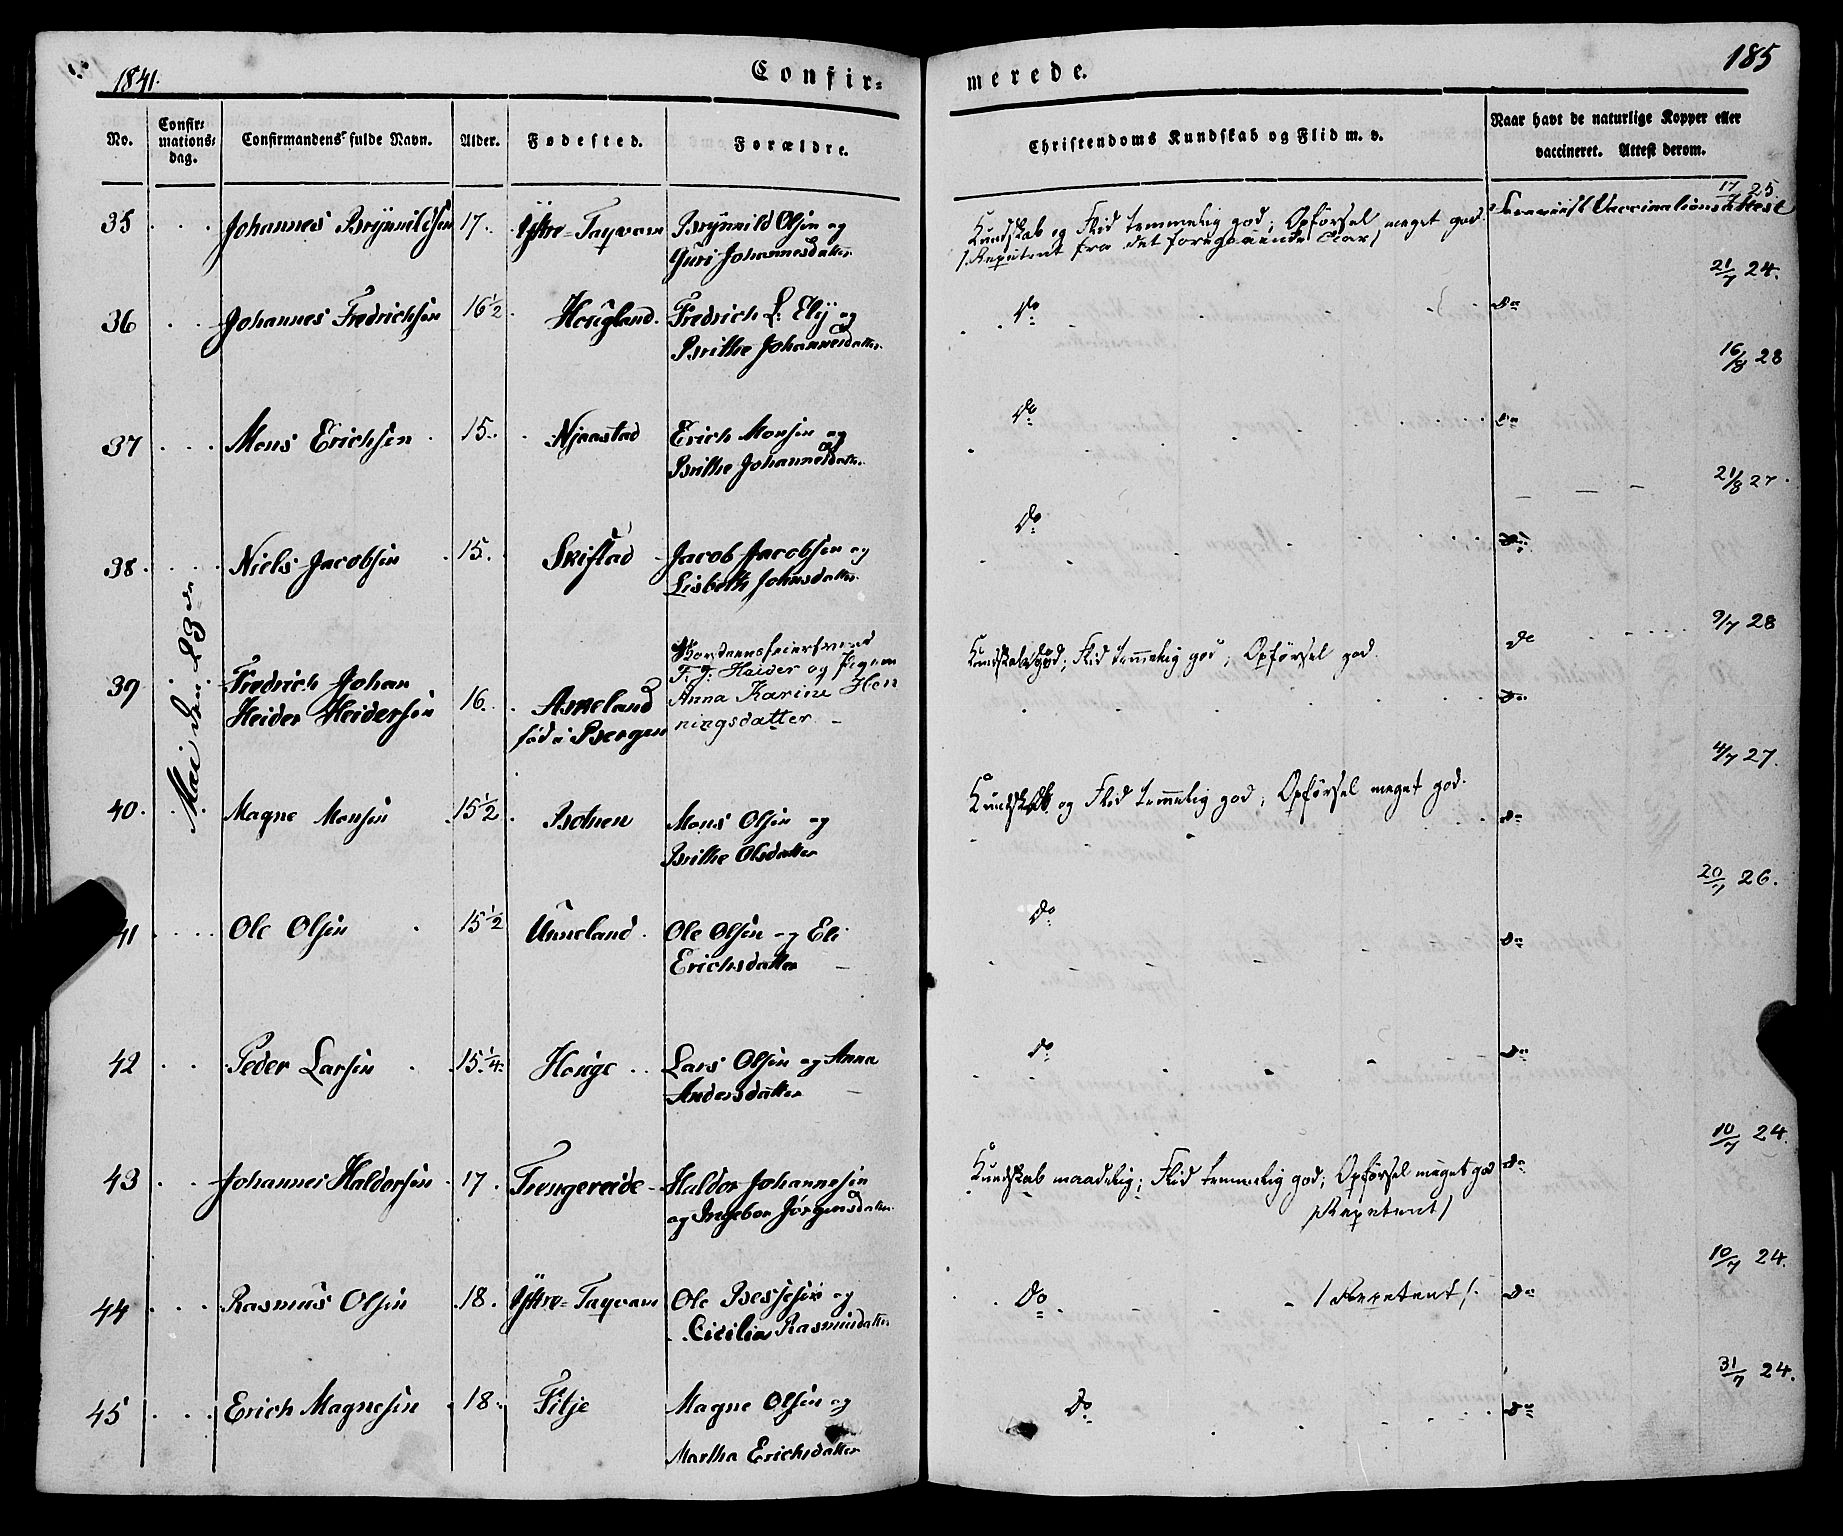 1841.
Confir=
merede.
185
No.
Confir=
mations=
dag.
Confirmandens fulde Navn.
Alder.
Fødested.
Forældre.
Christendoms Kundskab og Flid m. v.
Naar havt de naturlige Kopper eller
vaccineret. Attest derom.
Mai den 23de
35 Johannes Brynnildsen 17. Ystre-Tayvam Brynnild Olsen og
Guri Johannesdatter
Kundskab og Flid temmelig god; Opførsel meget god
/:Repetent fra det foregaaende Aar/
Foreviist Vaccinations Attest 17/7 25.
36 Johannes Fredrichsen 16 1/2 Hougland. Fredrich L: Elij og
Brithe Johannesdatter.
Do
do 21/7 24.
37 Mons Erichsen 15. Njaastad Erich Monsen og
Brithe Johannesdatter.
Do
do 16/8 28
38. Niels Jacobsen 15. Skiftad Jacob Jacobsen og
Lisbeth Johnsdatter
Do
do 21/8 27.
39 Fredrich Johan
Heider Heidersen 16. Asneland
fød i Bergen
F. J. Heider og Pigen
Anna Karine Hen
ningsdatter
Kundskab god; Flid temmelig god; Opførsel god.
do
do 9/7 28
40. Magne Monsen 15 1/2 Botnen Mons Olsen og
Brithe Olsdatter
Kundskab og Flid temmelig god; Opførsel meget god.
do 4/7 27.
41 Ole Olsen 15 1/2 Unneland. Ole Olsen og Eli
Erichsdatter
Do
do 20/7 26.
42 Peder Larsen 15 1/4 Houge Lars Olsen og Anna
Andersdatter
Do
do
43 Johannes Haldorsen 17. Trengereide Haldor Johannesen
og Ingebor Jørgensdatter
Kundskab maadelig; Flid temmelig god; Opførsel meget god
/Repetent/
do 10/7 24.
44 Rasmus Olsen 18. Ystre-Tayvam Ole Besjesen og
Cicilia Rasmusdatter
Do /Repetent/.
do 10/7 24.
45 Erich Magnesen 18. Fitje Magne Olsen og
Martha Erichsdatter
Do
do 31/7 24.